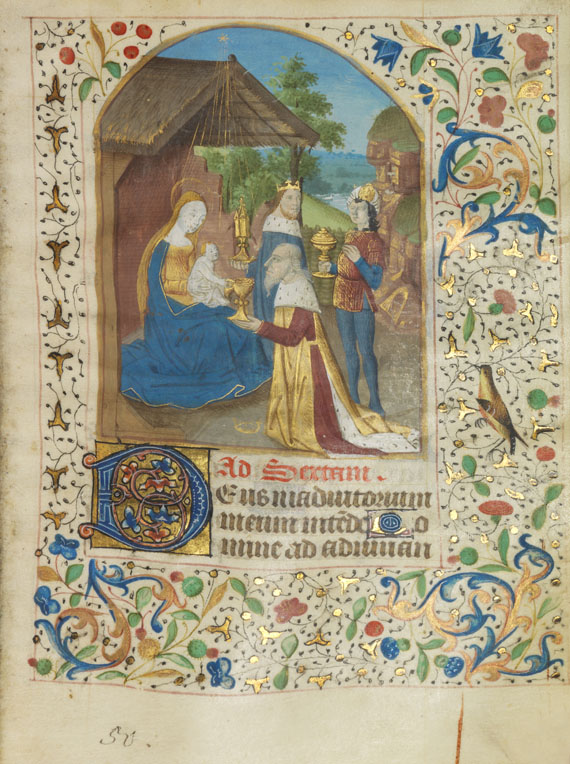 Ad Sextam.
DEus in adiutorium
meum intēde Do
mine ad adiuuan